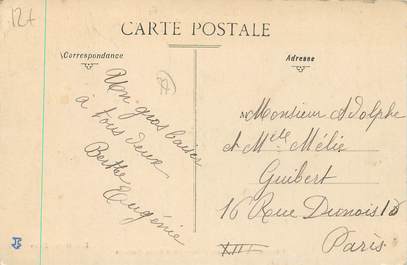 12t
CARTE POSTALE
Correspondance
Adresse
Un gros baiser
à tous deux
Berthe
Eugénie
Monsieur Adolphe
et Mlle Mélie
Guibert
16 Rue Dunois 16
XIII
Paris